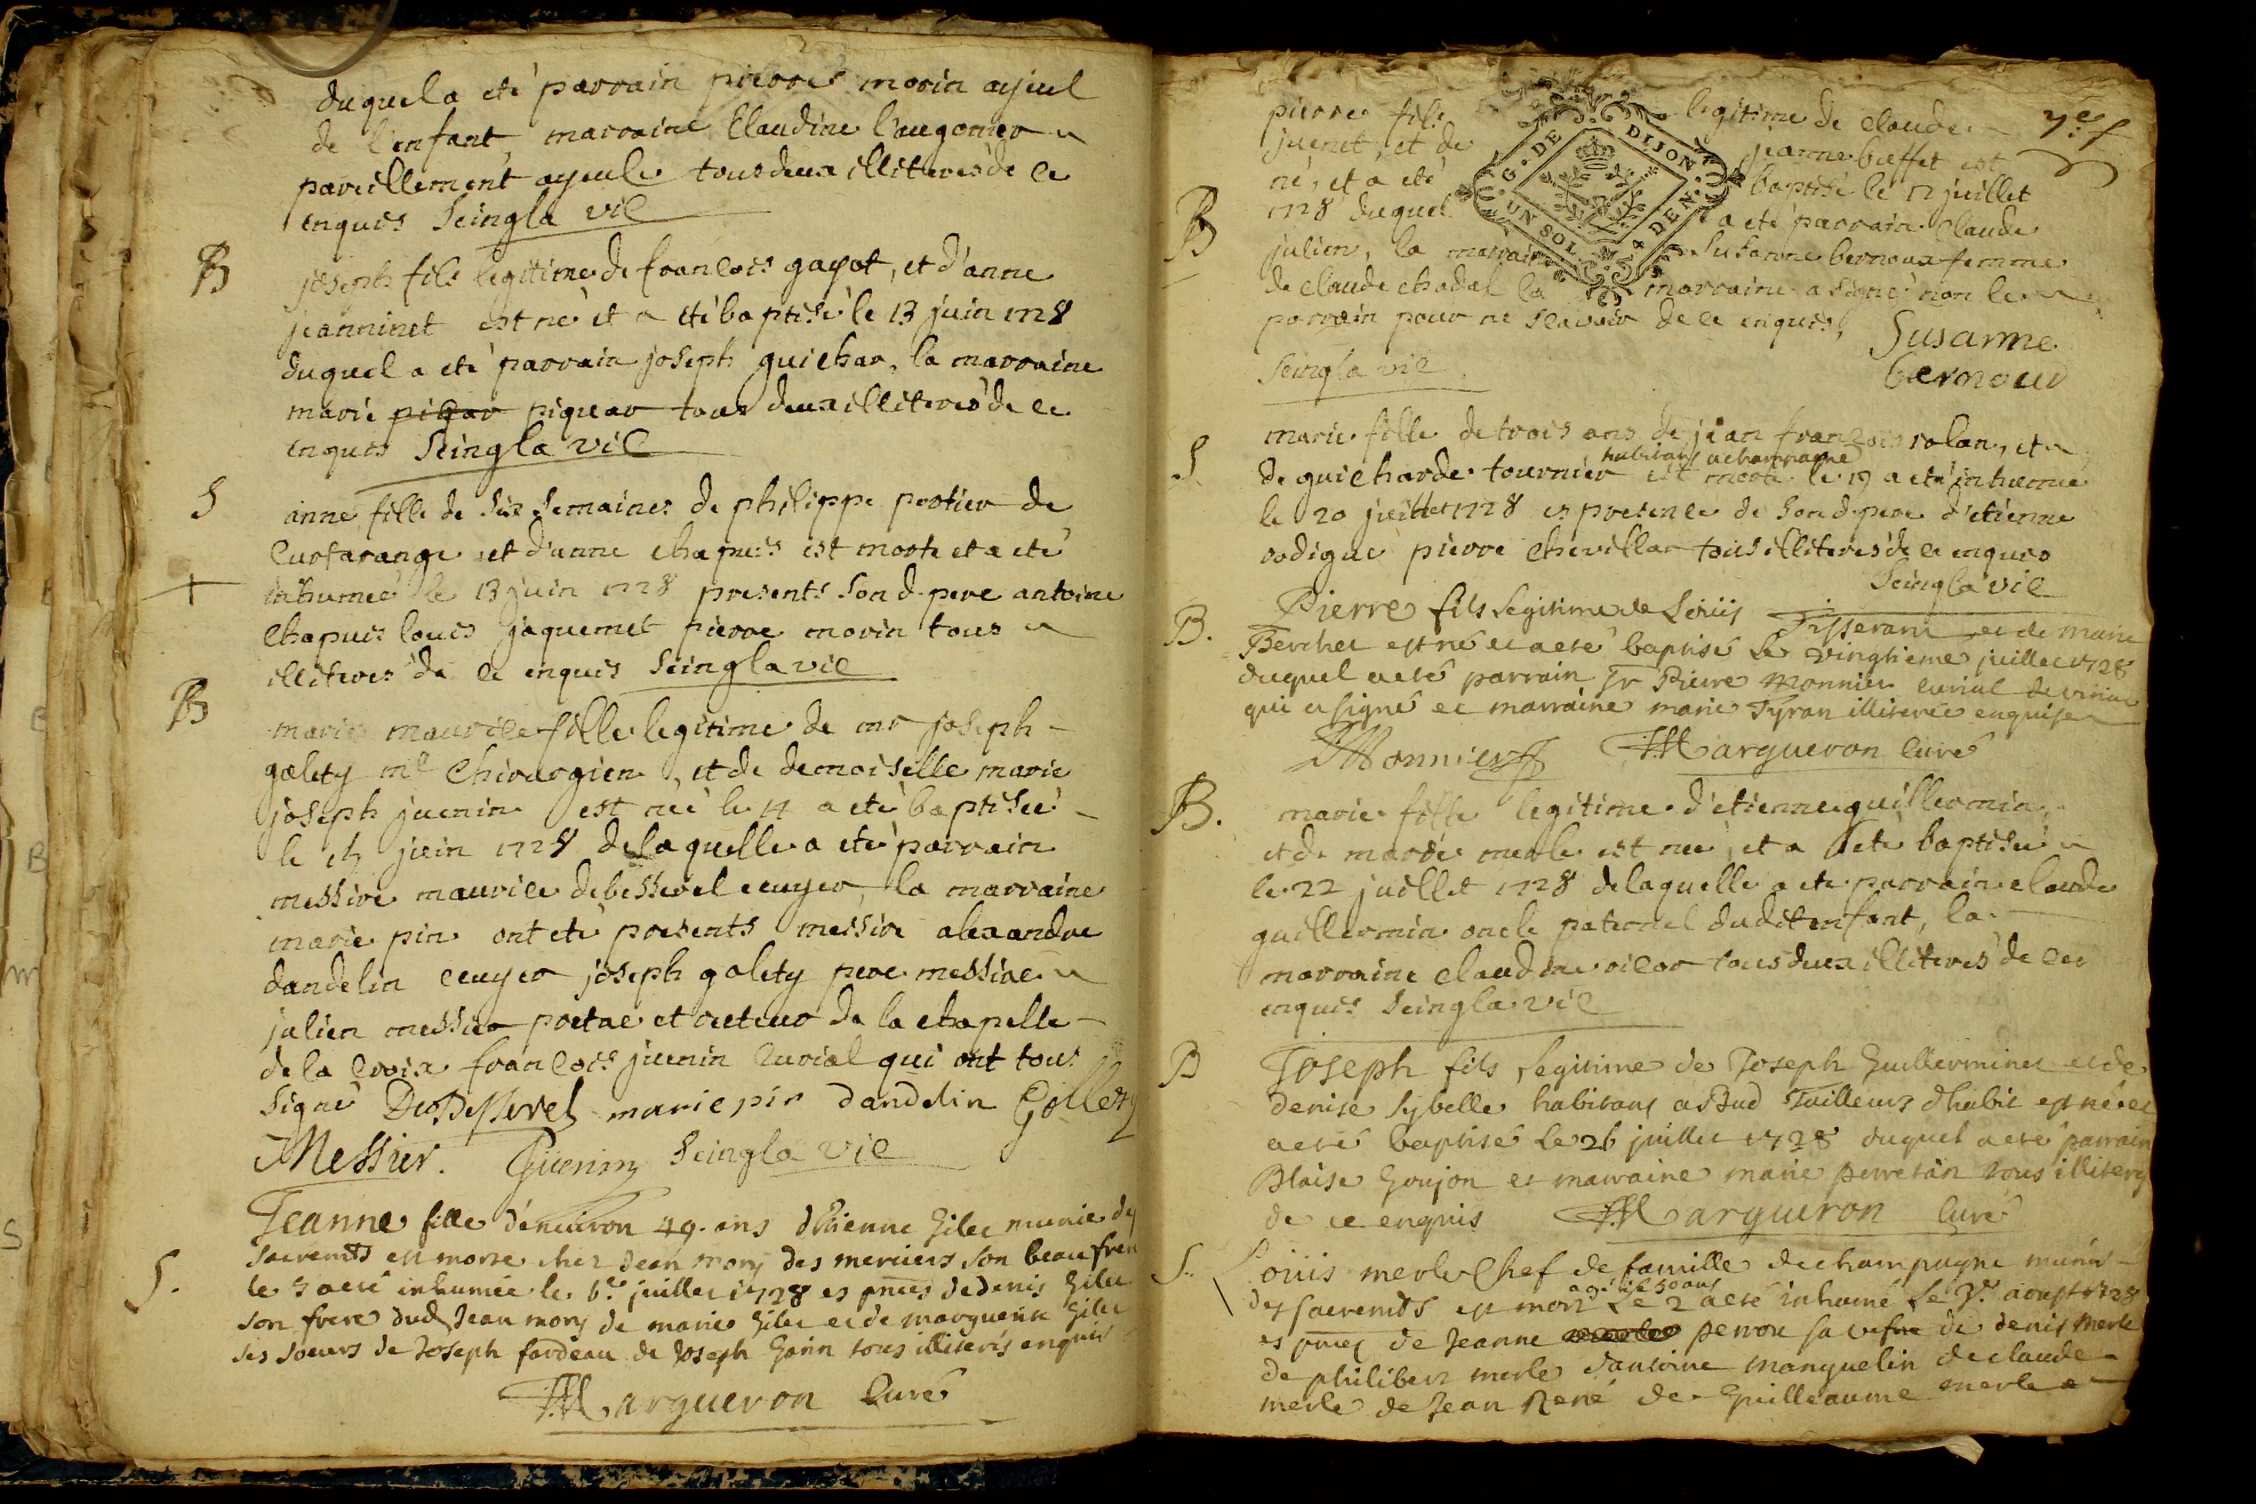 duquel a eté parrain pierre morin ayeul
de l'enfant, marraine Claudine l'augonier
pareillement ayeule tous deux illiteres de ce
enquis Seingla vic
B
joseph fils legitime de francois gayot, et d'anne
jeanninet est né et a eté baptisé le 13 juin 1728
duquel a eté parrain joseph guichar, la marraine
marie piquar tous deux illiteres de ce
enquis Seingla vic
S
anne fille de six semaines de philippe portier de
Curfarange et d'anne chapuis est morte et a eté
inhumeé le 13 juin 1728 presents son d. pere antoine
Chapuis louis jaquemet pierre morin tous
illiteres de ce enquis Seingla vic
B
marie maurice fille legitime de mr joseph
golety me Chirurgien, et de demoiselle marie
joseph juenin est neé le 14 a eté baptiseé
le juin 1728 de laquelle a eté parrain
messire maurice debesserel ecuyer, la marraine
marie pin ont eté presents messire alexandre
dandelin ecuyer joseph golety pere messire
julien messier pretre et recteur de la chapelle
de la croix francois juenin curial qui ont tous
signé DeBesserel marie pin dandelin Golletty
Messier. Juenin Seingla vic
S.
Jeanne fille d'environ 49. ans d'Etienne Gilet munie des
sacremts est morte chez Jean mory des merciers son beau frere
le 5 a eté inhumée le 6.e juillet 1728 es pnces de denis Gilet
son frere dud Jean mory de marie Gilet et de marguerite Gilet
ses soeurs de Joseph fardeau de Joseph Gonin tous illiterés enquis
Margueron Curé
7.e f
G. DE DIJON.
UN SOL 4 DEN.
B
pierre fils legitime de claude
juenet, et de jeanne buffet est
né, et a eté baptisé le 12 juillet
1728 duquel a eté parrain Claude
julien, la marraine Susanne bernoux femme
de claude chadal la marraine a signé non le
parrain pour ne scavoir de ce enquis,
Seingla vic
Susanne
bernoud
S
marie fille de trois ans de jean francois rolan, et
habitans a champagne
de guicharde tournier est morte le 19 a eté inhumeé
le 20 juillet 1728 es presence de son d. pere d'etienne
rodigue pierre chevillar tous illiteres de ce enquis
Seingla vic
B.
Pierre fils legitime de Loüis Tisserant et de marie
Berchet est né et a eté baptisé le vingtieme juillet 1728
duquel a eté parrain Sr Pierre monnier curial de viriat
qui a signé et marraine marie Tyran illiterée enquise
PMonnier Margueron Curé
B.
marie fille legitime d'etienne guillermin,
et de marie merle est neé, et a eté baptiseé
le 22 juillet 1728 de laquelle a eté parrain claude
guillermin oncle paternel dudit enfant, la
marraine claudine vicar tous deux illiteres de ce
enquis Seingla vic
B
Joseph fils legitime de Joseph Guillerminet et de
denise Sybelle habitans a Bud Tailleurs dhabit est né et
a eté baptisé le 26 juillet 1728 duquel a eté parrain
Blaise Goujon et marraine marie perretan tous illiterés
de ce enquis Margueron Curé
S.
Loüis merle Chef de famille de champagne munis
agé de 50 ans
des sacremts est mort Le 2 a eté inhumé Le 3.e aoust 1728
es pnces de Jeanne perron sa vefve de denis merle
de philibert merle d'antoine manguelin de claude
merle de Jean René de Guilleaume merle